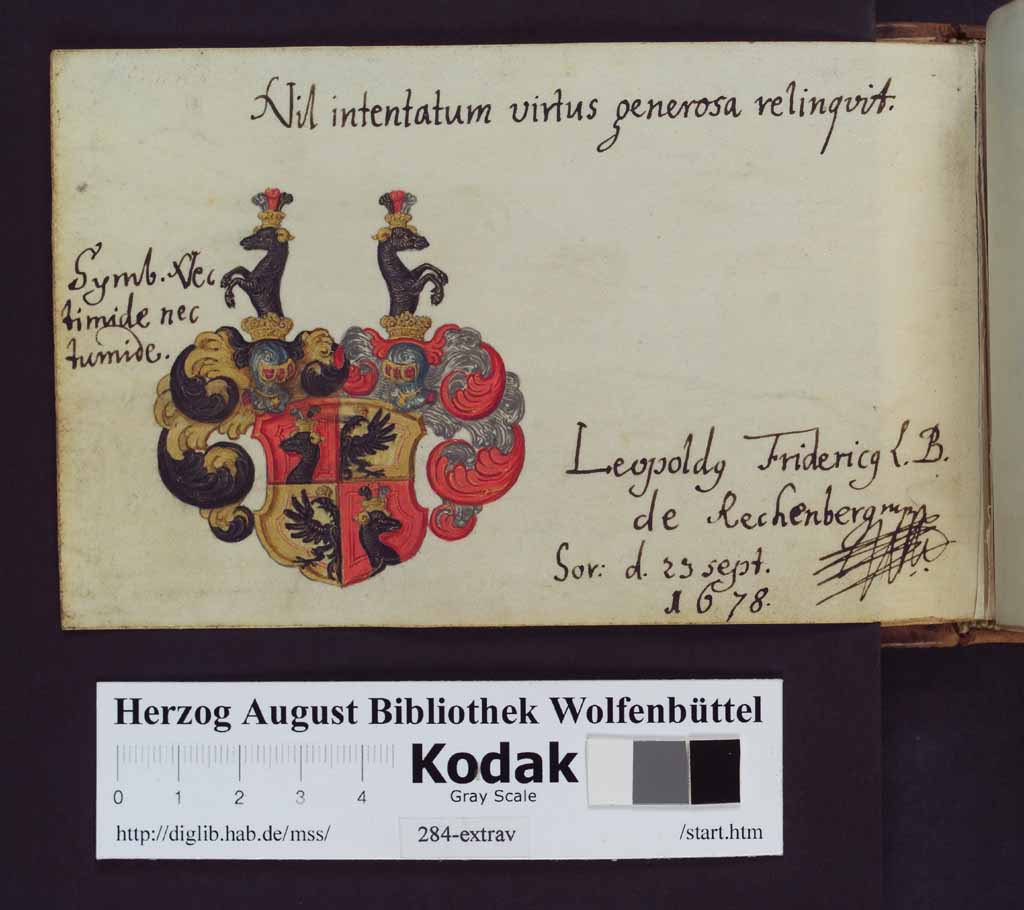 Nil intentatum virtus generosa relinqvit.
Symb. Nec
timide nec
tumide.
Leopoldꝰ Fridericꝰ L. B.
de Rechenberg mpp
Sor: d. 23 sept.
1678.
Herzog August Bibliothek Wolfenbüttel
Kodak
Gray Scale
0 1 2 3 4
http://diglib.hab.de/mss/ 284-extrav /start.htm